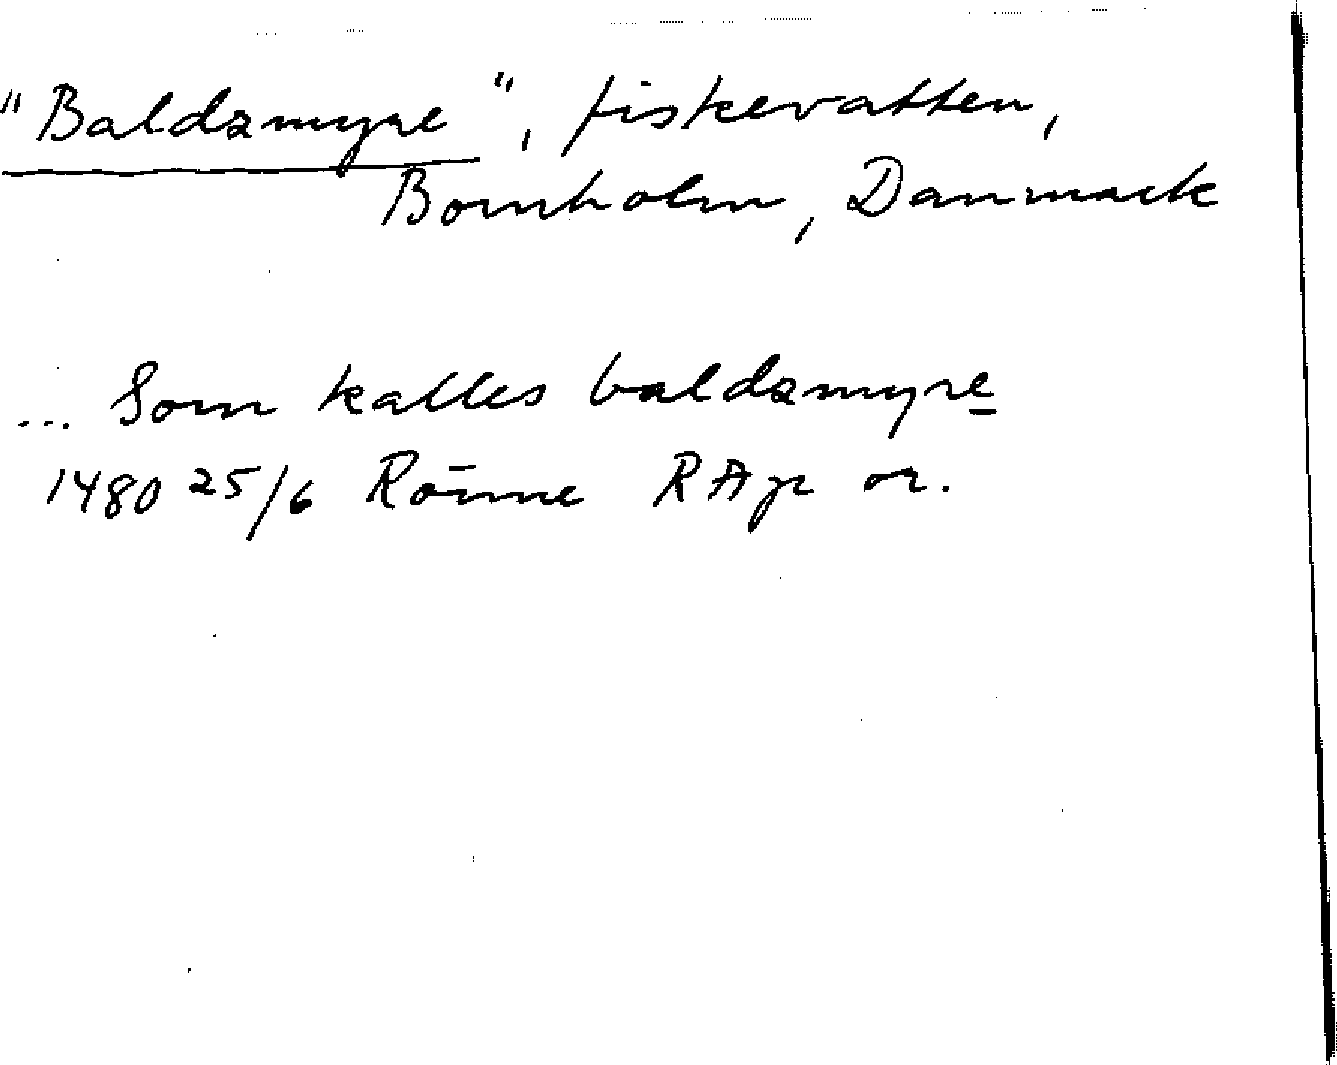 "Baldzmyre", fiskevatten,
Bornholm, Danmark
... Som kalles baldzmyre
1480 25/6 Rönne RAp or.